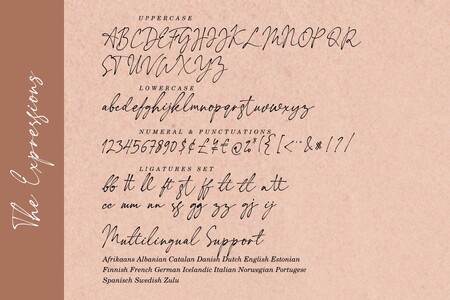 The Expressions
UPPERCASE
ABCDEFGHIJKLMNOPQR
STUVWXYZ
LOWERCASE
abcdefghijklmnopqrstuvwxyz
NUMERAL & PUNCTUATIONS
1234567890$¢£¥€@%*({[<··&#|?/
LIGATURES SET
bb tt ll ft st ff lt tl att
cc mm nn ss gg zz gj ij
Multilingual Support
Afrikaans Albanian Catalan Danish Dutch English Estonian
Finnish French German Icelandic Italian Norwegian Portugese
Spanisch Swedish Zulu